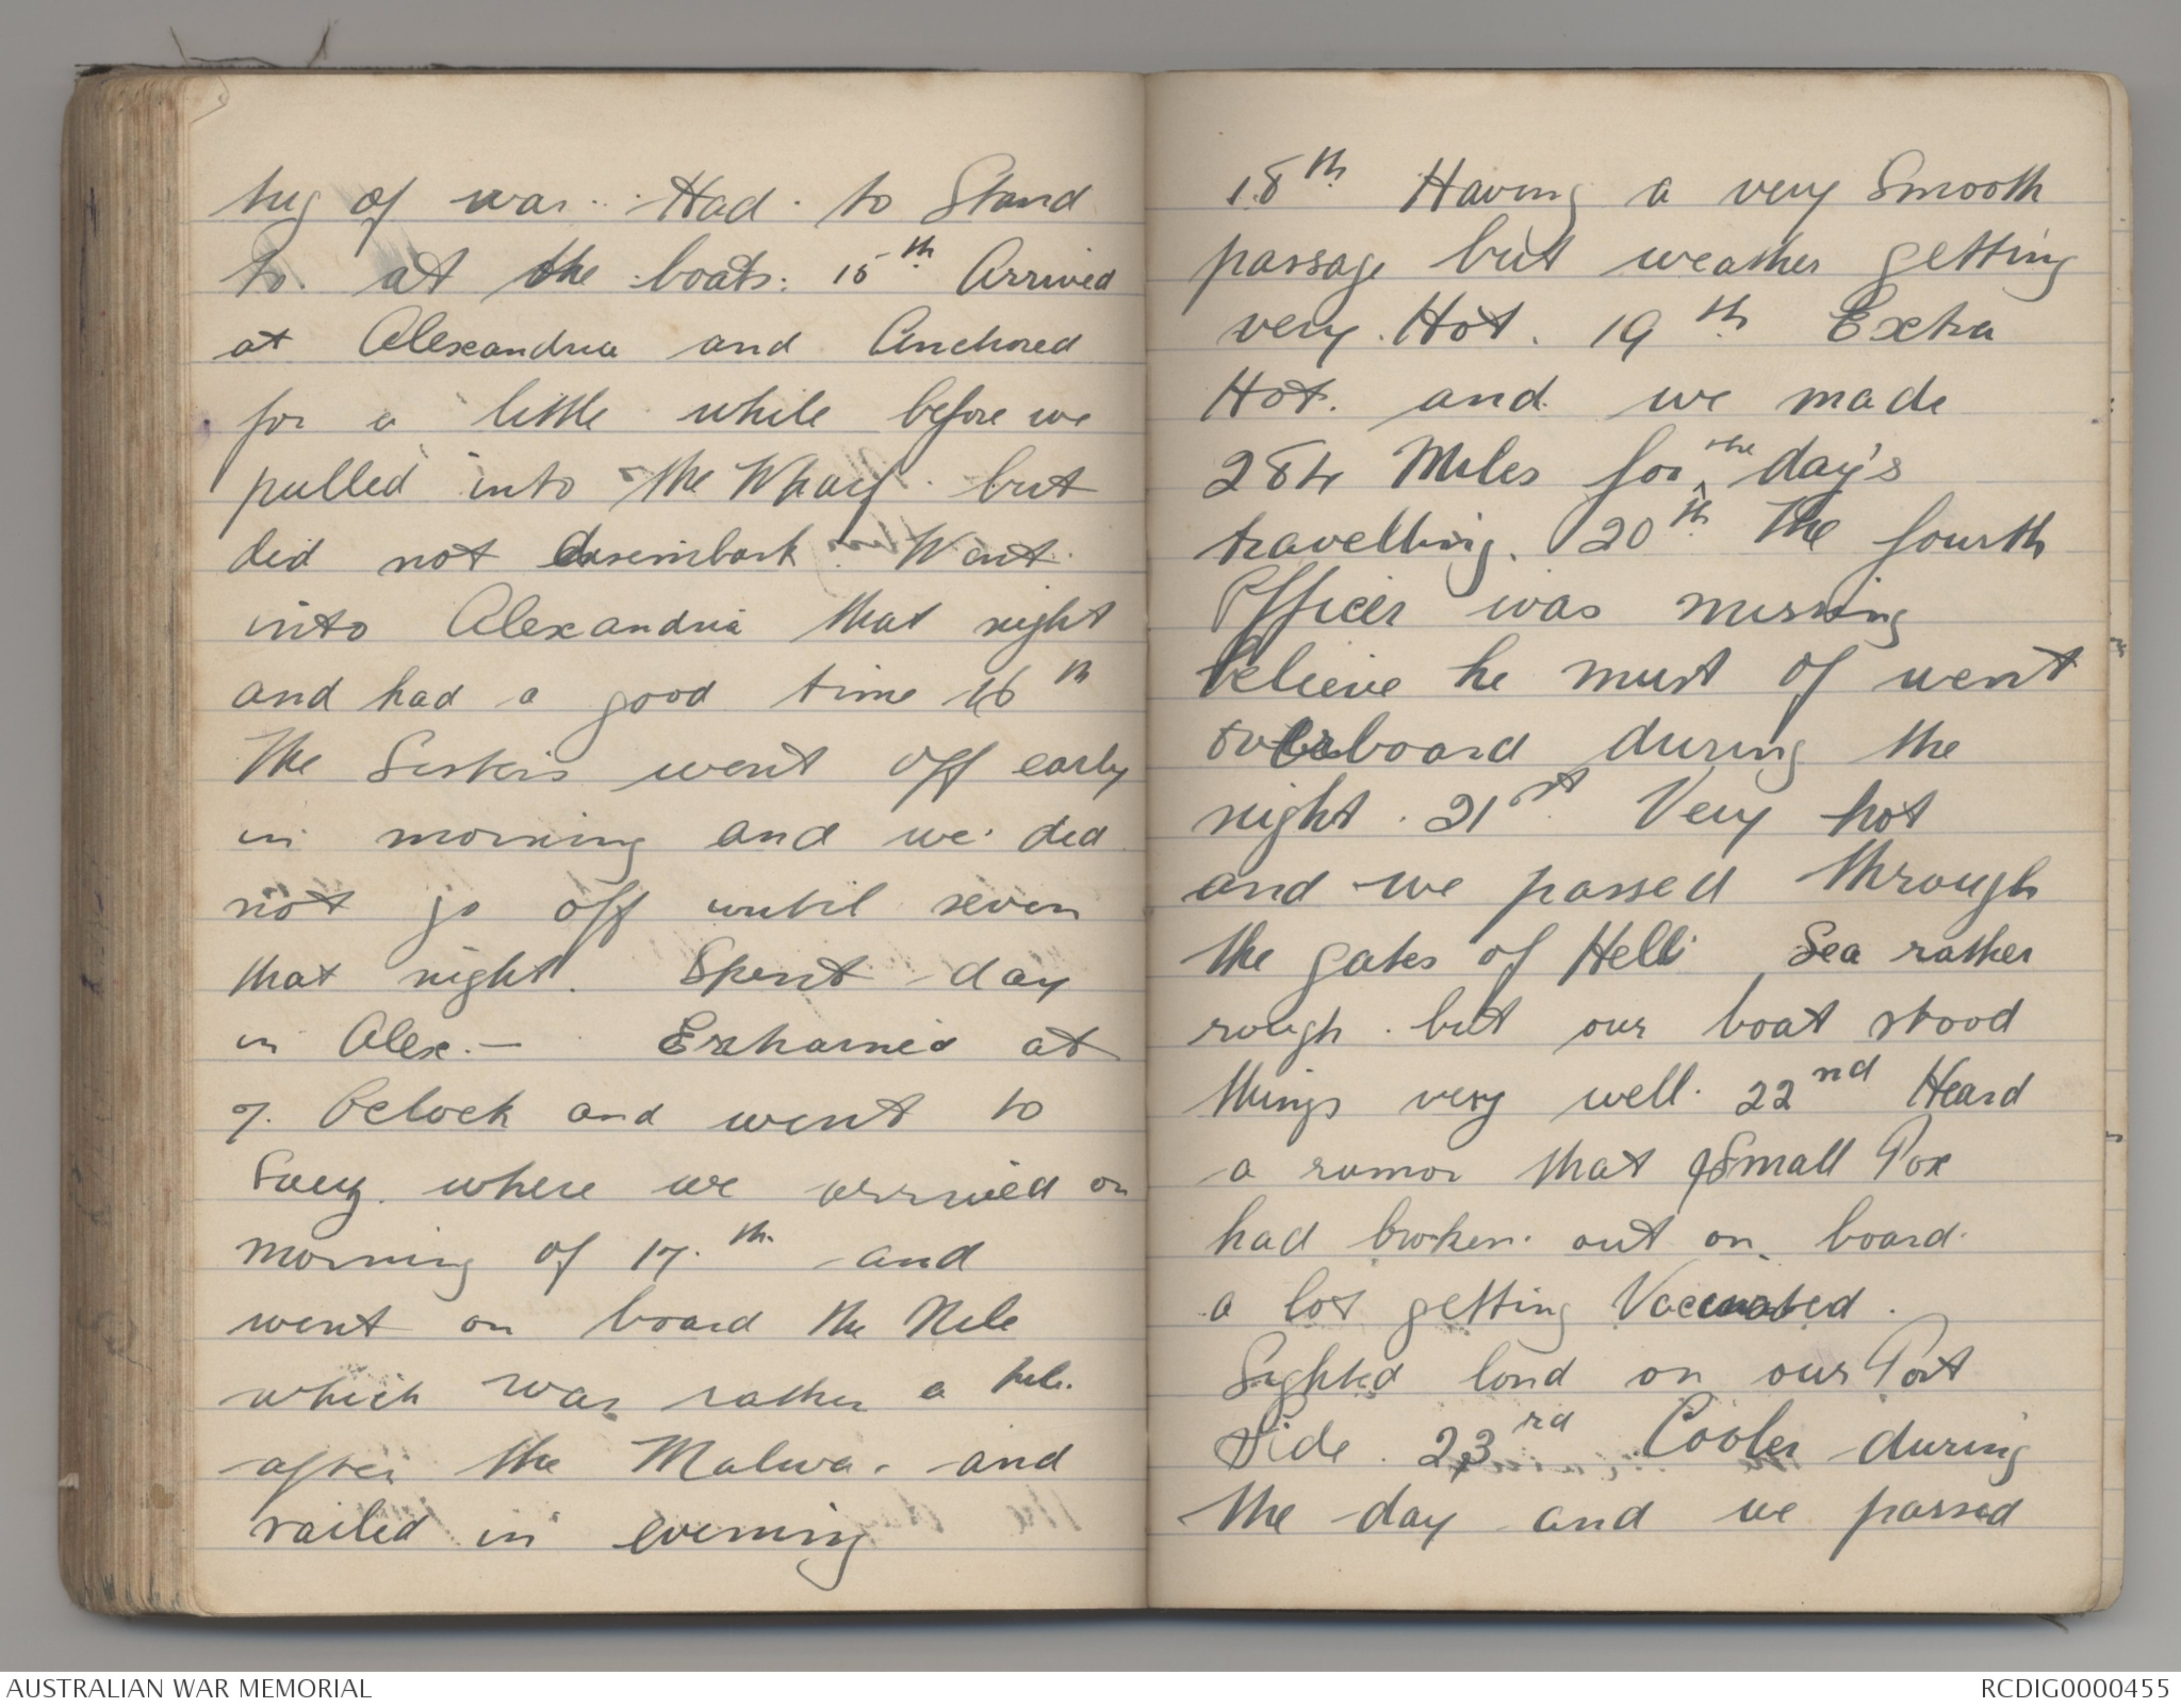 tug of war. Had to Stand
to at the boats. 15th Arrived
at Alexandria and Anchored
for a little while before we
pulled into the Wharf but
did not disembark. Went
into Alexandria that night
and had a good time 16th
The Sisters went off early
in morning and we did
not go off until seven
that night. Spent day
in Alex. - at
7. Oclock and went to
Suez. where we arrived on
morning of 17.th and
went on board the Nile
which was rather a
after the Malwa. and
sailed in evening
18th Having a very Smooth
passage but weather getting
very Hot. 19th Extra
Hot. and we made
284 Miles for the day's
travelling. 20th The fourth
Officer was missing
believe he must of went
overboard during the
night. 21st Very hot
and we passed through
the gates of Hell. Sea rather
rough. but our boat stood
things very well. 22nd Heard
a rumor that Small Pox
had broken out on board.
a lot getting
Sighted land on our Port
Side. 23rd Cooler during
the day and we passed
AUSTRALIAN WAR MEMORIAL
RCDIG0000455